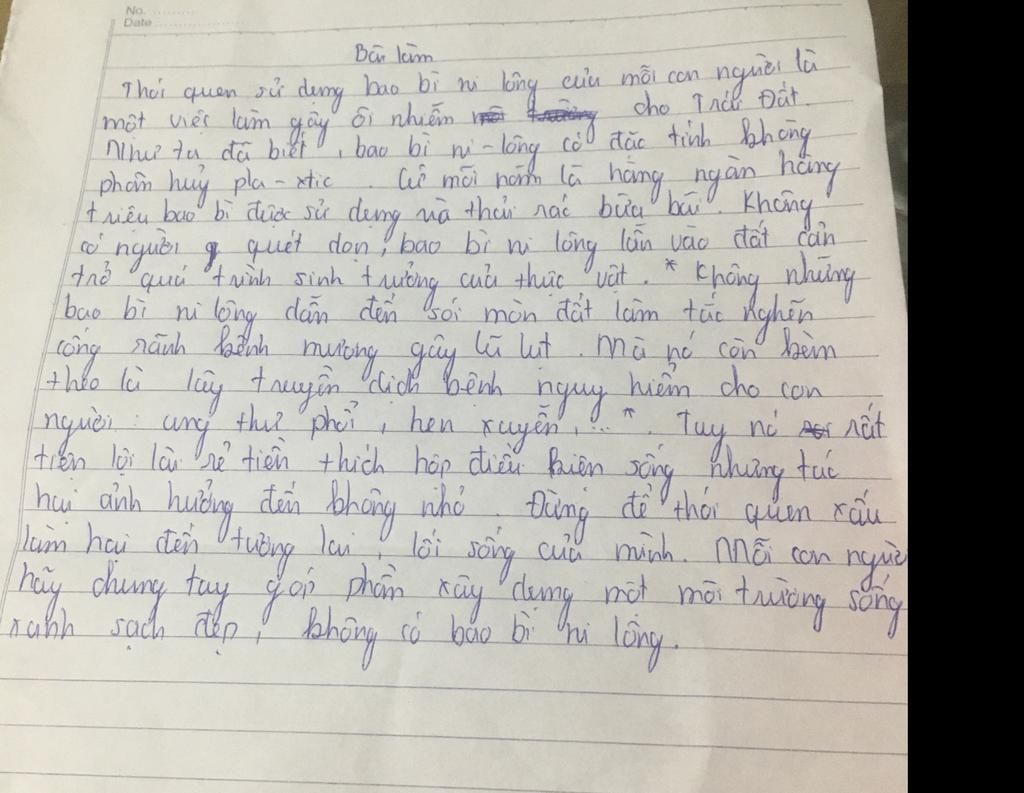 No. ..........
Date ..........................
Bài làm
Thói quen sử dụng bao bì ni lông của mỗi con người là
một việc làm gây ôi nhiễm cho Trái Đất.
Như ta đã biết, bao bì ni-lông có đặc tính không
phân huỷ pla-xtic. Cứ mỗi năm là hàng ngàn hàng
triệu bao bì được sử dụng và thải rác bừa bãi. Không
có người quét dọn, bao bì ni lông lẫn vào đất cản
trở quá trình sinh trưởng của thực vật. * Không những
bao bì ni lông dẫn đến sói mòn đất làm tắc nghẽn
cống rãnh kênh mương gây lũ lụt. Mà nó còn kèm
theo là lây truyền dịch bệnh nguy hiểm cho con
người: ung thư phổi, hen xuyễn, ... * . Tuy nó rất
tiện lợi lại rẻ tiền thích hợp điều kiện sống nhưng tác
hại ảnh hưởng đến không nhỏ. Đừng để thói quen xấu
làm hại đến tương lai, lối sống của mình. Mỗi con người
hãy chung tay góp phần xây dựng một môi trường sống
xanh sạch đẹp, không có bao bì ni lông.